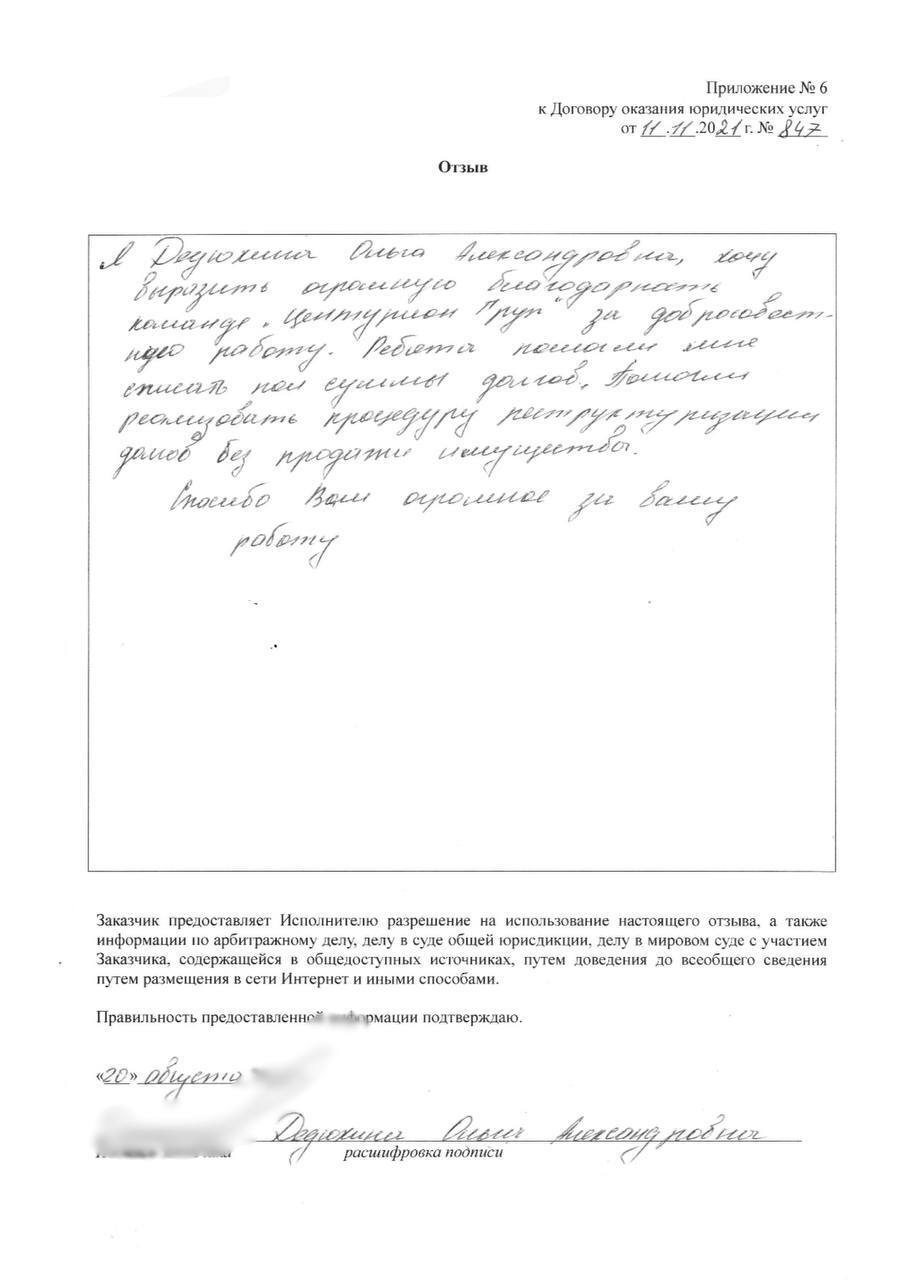 Приложение № 6
к Договору оказания юридических услуг
от 11.11.2021 г. № 847
Отзыв
Я Дедюхина Ольга Александровна, хочу
выразить огромную благодарность
команде „Центурион Груп“ за добросовест-
ную работу. Ребята помогли мне
списать пол суммы долгов. Помогли
реализовать процедуру реструктуризации
долгов без продажи имущества.
Спасибо Вам огромное за вашу
работу
Заказчик предоставляет Исполнителю разрешение на использование настоящего отзыва, а также
информации по арбитражному делу, делу в суде общей юрисдикции, делу в мировом суде с участием
Заказчика, содержащейся в общедоступных источниках, путем доведения до всеобщего сведения
путем размещения в сети Интернет и иными способами.
Правильность предоставленной информации подтверждаю.
«20» августа
Дедюхина Ольга Александровна
расшифровка подписи